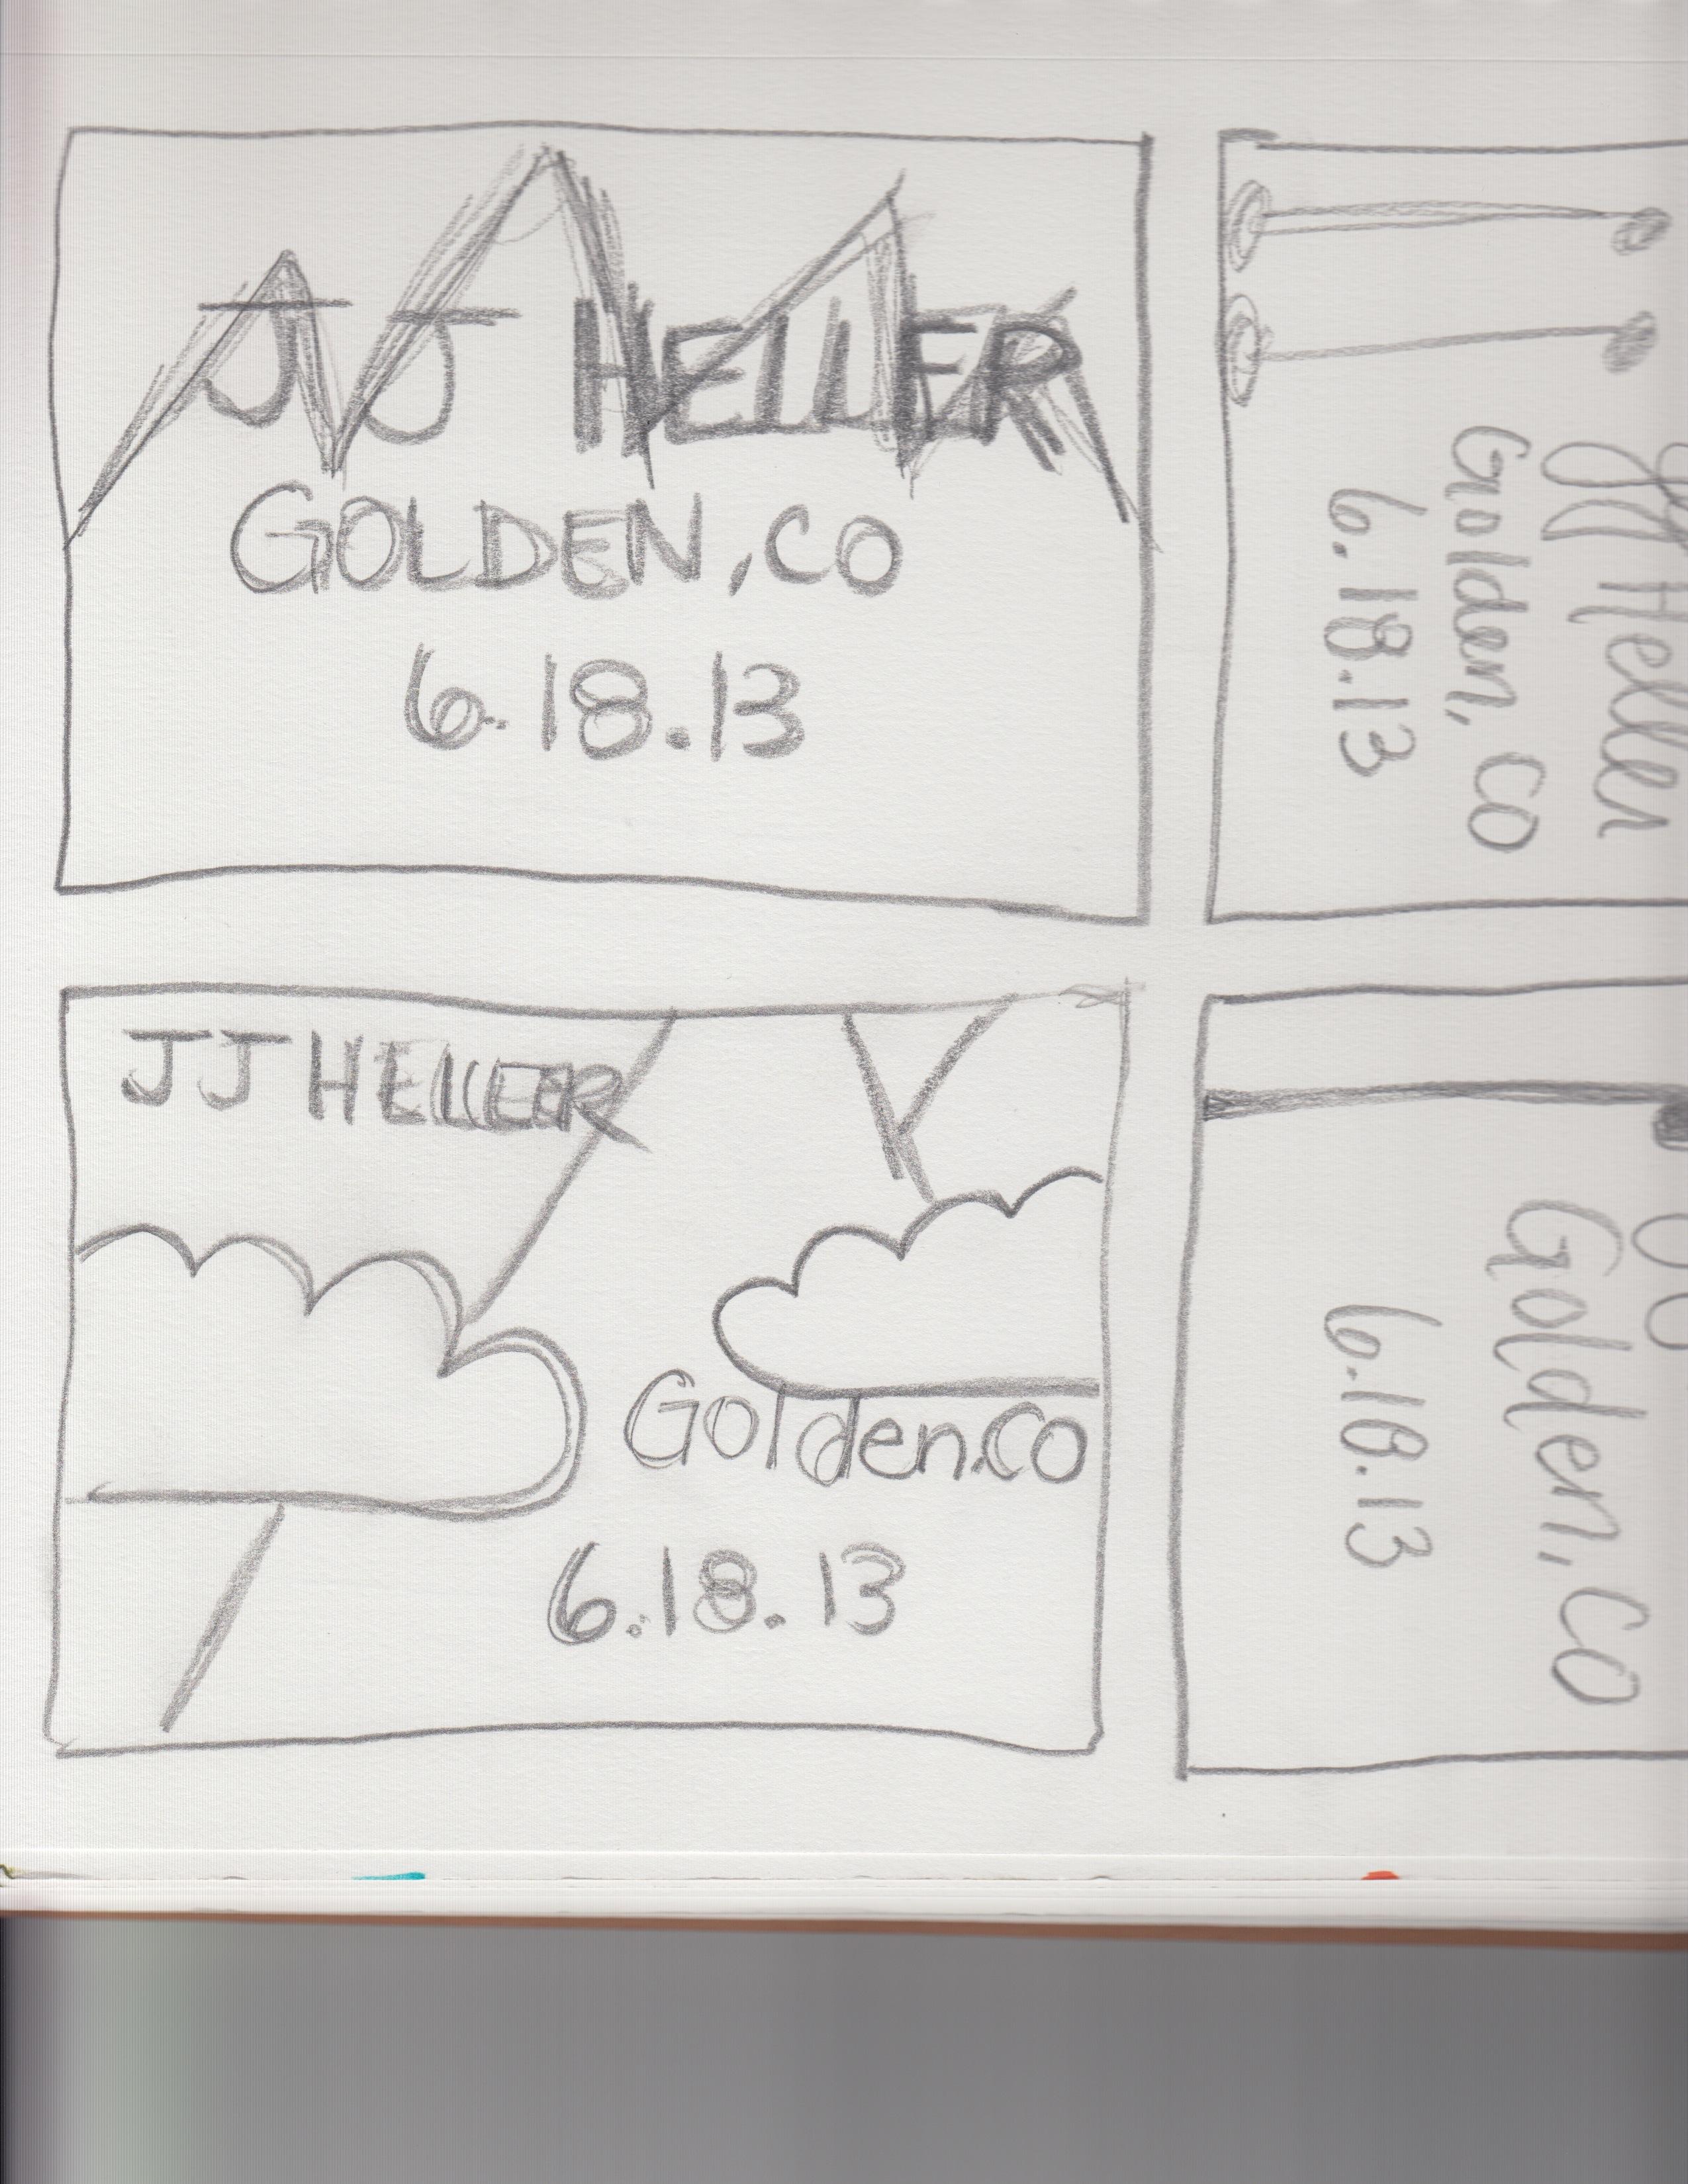 JJ HELLER
GOLDEN, CO
6.18.13
JJ Heller
Golden, CO
6.18.13
JJ HELLER
Golden, CO
6.18.13
Golden, CO
6.18.13